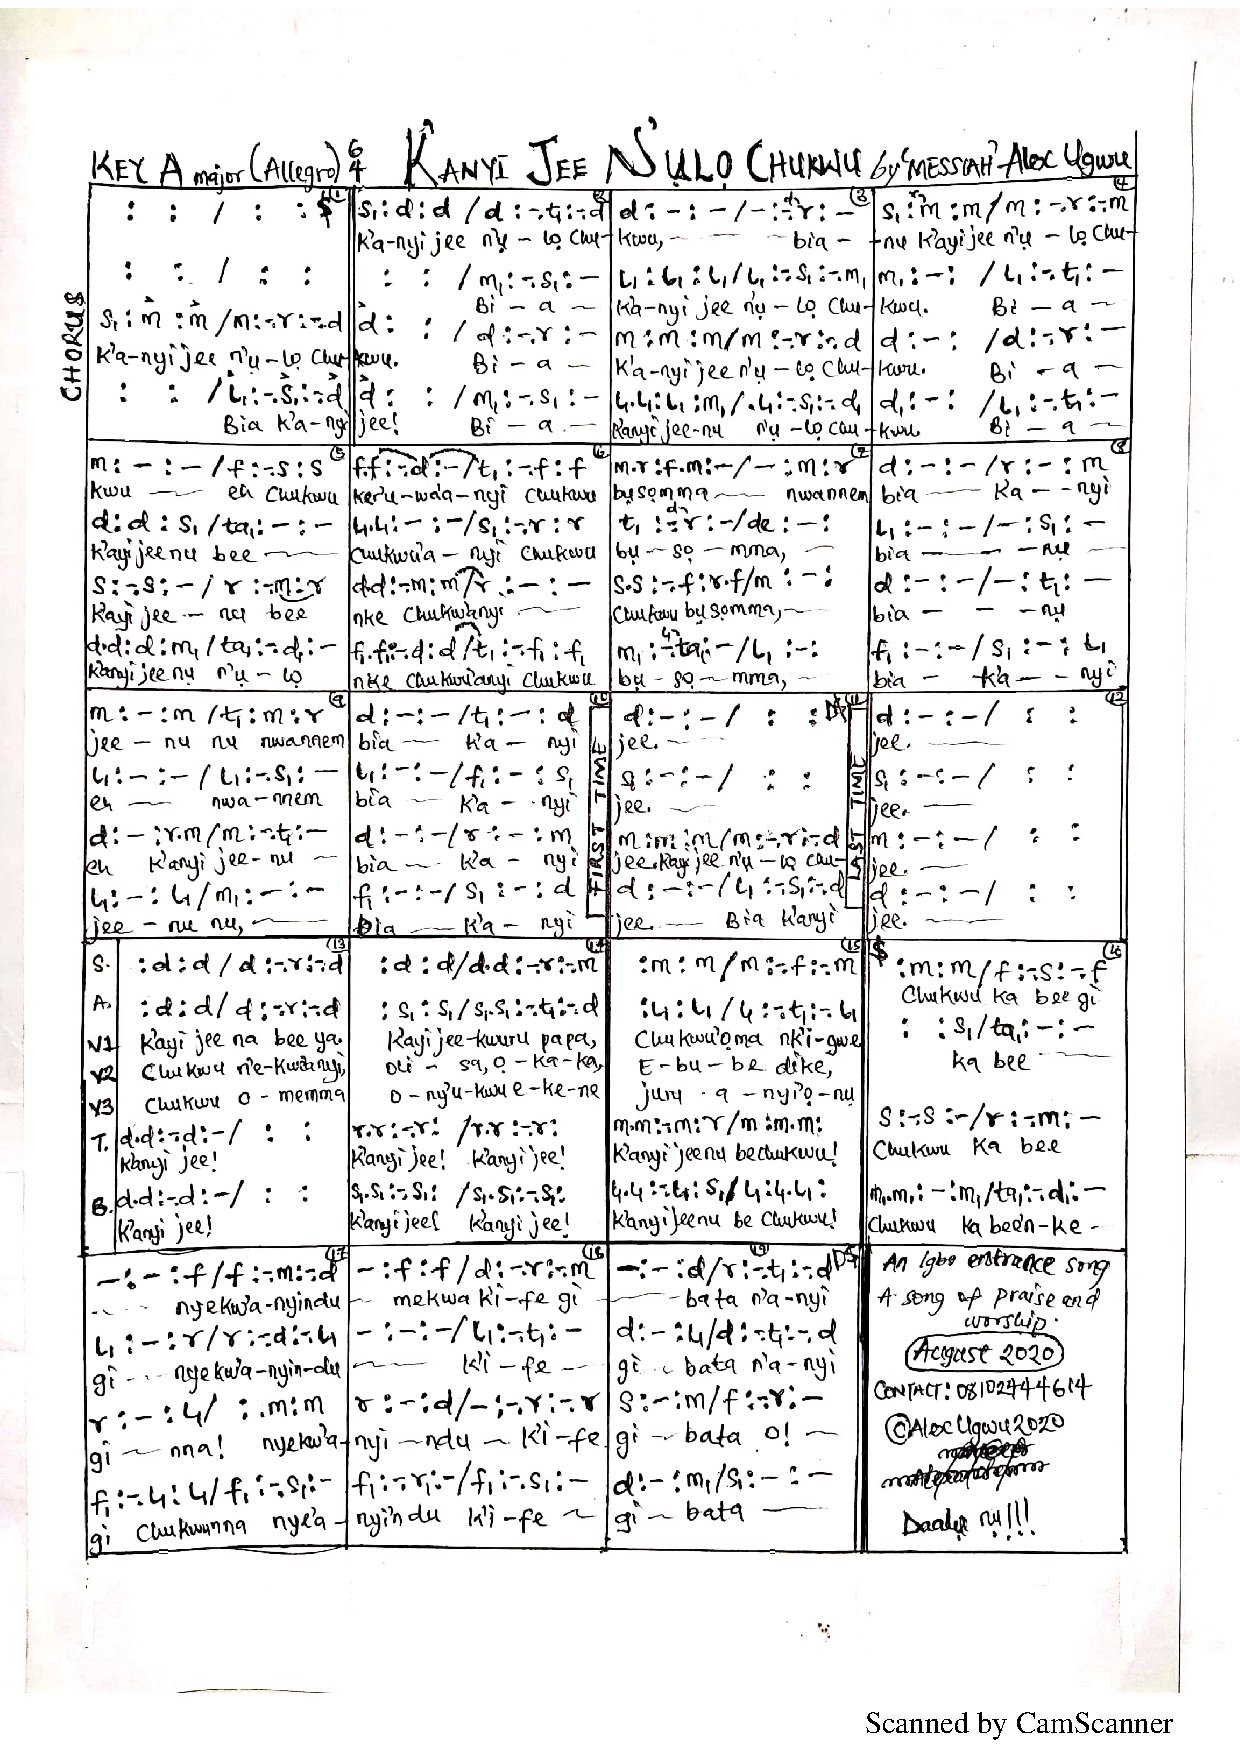 KEY A major (Allegro) 6/4 K'ANYI JEE N'ỤLỌ CHUKWU by "MESSIAH" Alex Ugwu
CHORUS
(1)
: : / : : 𝄋
: : / : :
s₁ : m : m / m :-. r :-. d
K'a-nyi jee n'ụ - lọ Chu-
: : / l₁ :-. s₁ :-. d
Bia K'a-nyi
(2)
s₁ : d : d / d :-. t₁ :-. d
K'a-nyi jee n'ụ - lọ Chu-
: : / m₁ :-. s₁ : -
Bi - a -
d : : / d :-. r : -
kwu. Bi - a -
d : : / m₁ :-. s₁ : -
jee! Bi - a -
(3)
d : - : - / - :-. r : -
kwu, - bia -
l₁ : l₁ : l₁ / l₁ :-. s₁ :-. m₁
K'a-nyi jee n'ụ - lọ Chu-
m : m : m / m :-. r :-. d
K'a-nyi jee n'ụ - lọ Chu-
l₁.l₁ : l₁ : m₁ / .l₁ :-. s₁ :-. d₁
Kanyi jee-nu n'ụ - lọ Chu-
(4)
s₁ : m : m / m :-. r :-. m
nu K'ayi jee n'ụ - lọ Chu-
m₁ : - : / l₁ :-. t₁ : -
kwu. Bi - a -
d : - : / d :-. r : -
kwu. Bi - a -
d₁ : - : / l₁ :-. t₁ : -
kwu Bi - a -
(5)
m : - : - / f :-. s : s
kwu - eh Chukwu
d : d : s₁ / ta₁ : - : -
K'ayi jee nu bee -
s :-. s : - / r :-. m :-. r
Kayi jee - nu bee
d.d : d : m₁ / ta₁ :-. d₁ : -
Kanyi jee nụ n'ụ - lọ
(6)
f.f :-. d : - / t₁ :-. f : f
ker'u-wa'a-nyi Chukwu
l₁.l₁ : - : - / s₁ :-. r : r
Chukwu'a - nyi Chukwu
d.d :-. m : m / r : - : -
nke Chukw'anyi -
f₁.f₁ :-. d : d / t₁ :-. f₁ : f₁
nke Chukwu'anyi Chukwu
(7)
m.r : f.m : - / - : m : r
bụsomma - nwannem
t₁ :-. r : - / de : - :
bụ - sọ - mma, -
s.s :-. f : r.f / m : - :
Chukwu bụ somma, -
m₁ :-. ta₁ : - / l₁ : - :
bụ - sọ - mma, -
(8)
d : - : - / r : - : m
bia - Ka - - nyi
l₁ : - : - / - : s₁ : -
bia - - - nụ -
d : - : - / - : t₁ : -
bia - - - nụ
f₁ : - : - / s₁ : - : l₁
bia - ka - - nyi
(9)
m : - : m / t₁ : m : r
jee - nu nu nwannem
l₁ : - : - / l₁ :-. s₁ : -
eh - nwa-nnem
d : - : r.m / m :-. t₁ : -
eh K'anyi jee-nu -
l₁ : - : l₁ / m₁ : - : -
jee - nu nu, -
(10)
d : - : - / t₁ : - : d
bia - k'a - nyi
l₁ : - : - / f₁ : - : s₁
bia - k'a - nyi
d : - : - / r : - : m
bia - k'a - nyi
f₁ : - : - / s₁ : - : d
bia - k'a - nyi
FIRST TIME
(11)
d : - : - / : : D𝄋
jee. -
s₁ : - : - / : :
jee. -
m : m : m / m :-. r :-. d
jee. Kayi jee n'ụ - lọ Chu-
d : - : - / l₁ :-. s₁ :-. d
jee. - Bia K'anyi
LAST TIME
(12)
d : - : - / : :
jee. -
s₁ : - : - / : :
jee. -
m : - : - / : :
jee. -
d : - : - / : :
jee. -
(13)
S. : d : d / d :-. r :-. d
A. : d : d / d :-. r :-. d
V1 Kayi jee na bee ya
V2 Chukwu n'e-kw'anyi,
V3 Chukwu o - memma
T. d.d :-. d : - / : :
K'anyi jee!
B. d.d :-. d : - / : :
K'anyi jee!
(14)
: d : d / d.d :-. r :-. m
: s₁ : s₁ / s₁.s₁ :-. t₁ :-. d
Kayi jee-kwuru papa,
Oli - sa, O - ka - ka,
O-ny'u-kwu e-ke-ne
r.r :-. r : / r.r :-. r :
K'anyi jee! K'anyi jee!
s₁.s₁ :-. s₁ : / s₁.s₁ :-. s₁ :
K'anyi jee! K'anyi jee!
(15)
: m : m / m :-. f :-. m
: l₁ : l₁ / l₁ :-. t₁ :-. l₁
Chukwu'ọma nk'i-gwe
E-bu-be dike,
juru a-nyi'ọ-nụ
m.m :-. m : r / m : m.m :
K'anyi jeenu beChukwu!
l₁.l₁ :-. l₁ : s₁ / l₁ : l₁.l₁ :
K'anyi jeenu be Chukwu!
(16)
𝄋 : m : m / f :-. s :-. f
Chukwu ka bee gi
: : s₁ / ta₁ : - : -
ka bee -
s :-. s : - / r :-. m : -
Chukwu Ka bee
m₁.m₁ : - : m₁ / ta₁ :-. d : -
Chukwu ka been'n-ke-
(17)
- : - : f / f :-. m :-. d
nyekw'a-nyindu
l₁ : - : r / r :-. d :-. l₁
gi - nyekw'a-nyin-du
r : - : l₁ / : .m : m
gi - nna! nyekw'a-
f₁ :-. l₁ : l₁ / f₁ :-. s₁ : -
gi Chukwunna nye'a-
(18)
- : f : f / d :-. r :-. m
- mekwa k'i-fe gi
- : - : - / l₁ :-. t₁ : -
- k'i - fe -
r : - : d / - :-. r :-. r
nyi - ndu - k'i-fe
f₁ :-. r₁ : - / f₁ :-. s₁ : -
nyi'ndu k'i-fe -
(19)
- : - : d / r :-. t₁ :-. d D𝄋
- bata n'a-nyi
d : - : l₁ / d :-. t₁ :-. d
gi - bata n'a-nyi
s : - : m / f :-. r : -
gi - bata o! -
d : - : m₁ / s₁ : - : -
gi - bata -
An Igbo entrance song
A song of praise and
worship.
August 2020
CONTACT: 08102444614
© Alex Ugwu 2020
Daalụ nụ!!!
Scanned by CamScanner